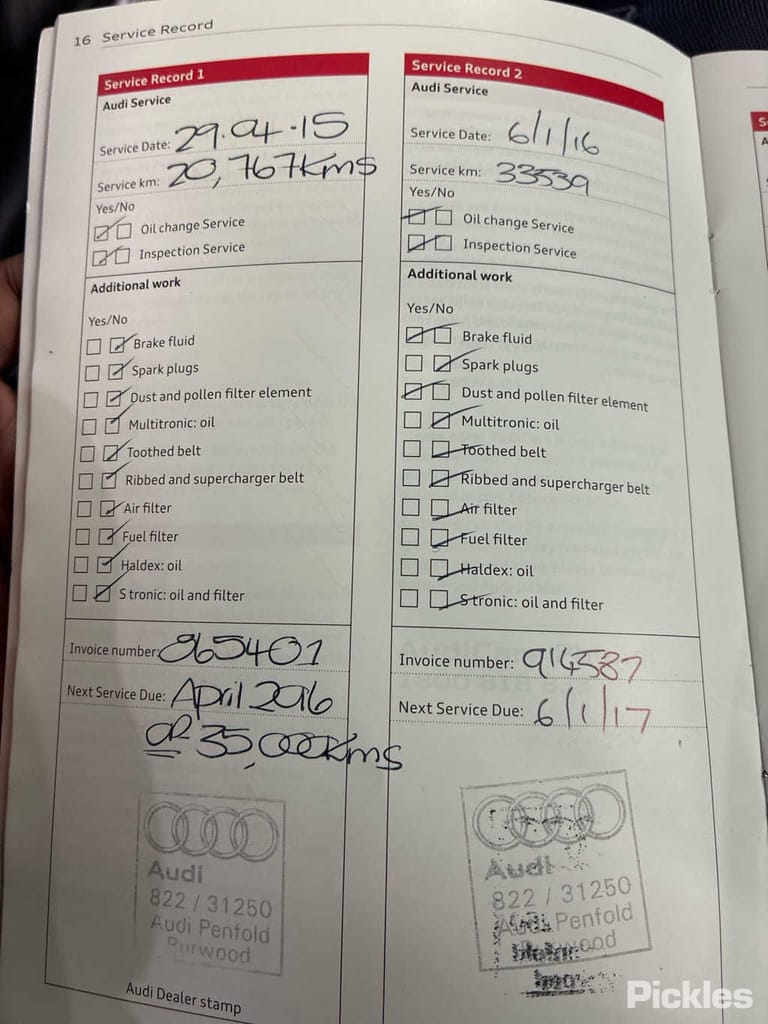 16 Service Record
Service Record 1
Audi Service
Service Date: 29.04.15
Service km: 20,767Kms
Yes/No
Oil change Service
Inspection Service
Additional work
Yes/No
Brake fluid
Spark plugs
Dust and pollen filter element
Multitronic: oil
Toothed belt
Ribbed and supercharger belt
Air filter
Fuel filter
Haldex: oil
S tronic: oil and filter
Invoice number: 865401
Next Service Due: April 2016
OR 35,000Kms
Audi
822 / 31250
Audi Penfold
Burwood
Audi Dealer stamp
Service Record 2
Audi Service
Service Date: 6/1/16
Service km: 33539
Yes/No
Oil change Service
Inspection Service
Additional work
Yes/No
Brake fluid
Spark plugs
Dust and pollen filter element
Multitronic: oil
Toothed belt
Ribbed and supercharger belt
Air filter
Fuel filter
Haldex: oil
S tronic: oil and filter
Invoice number: 914587
Next Service Due: 6/1/17
Audi
822 / 31250
Audi Penfold
Burwood
Pickles